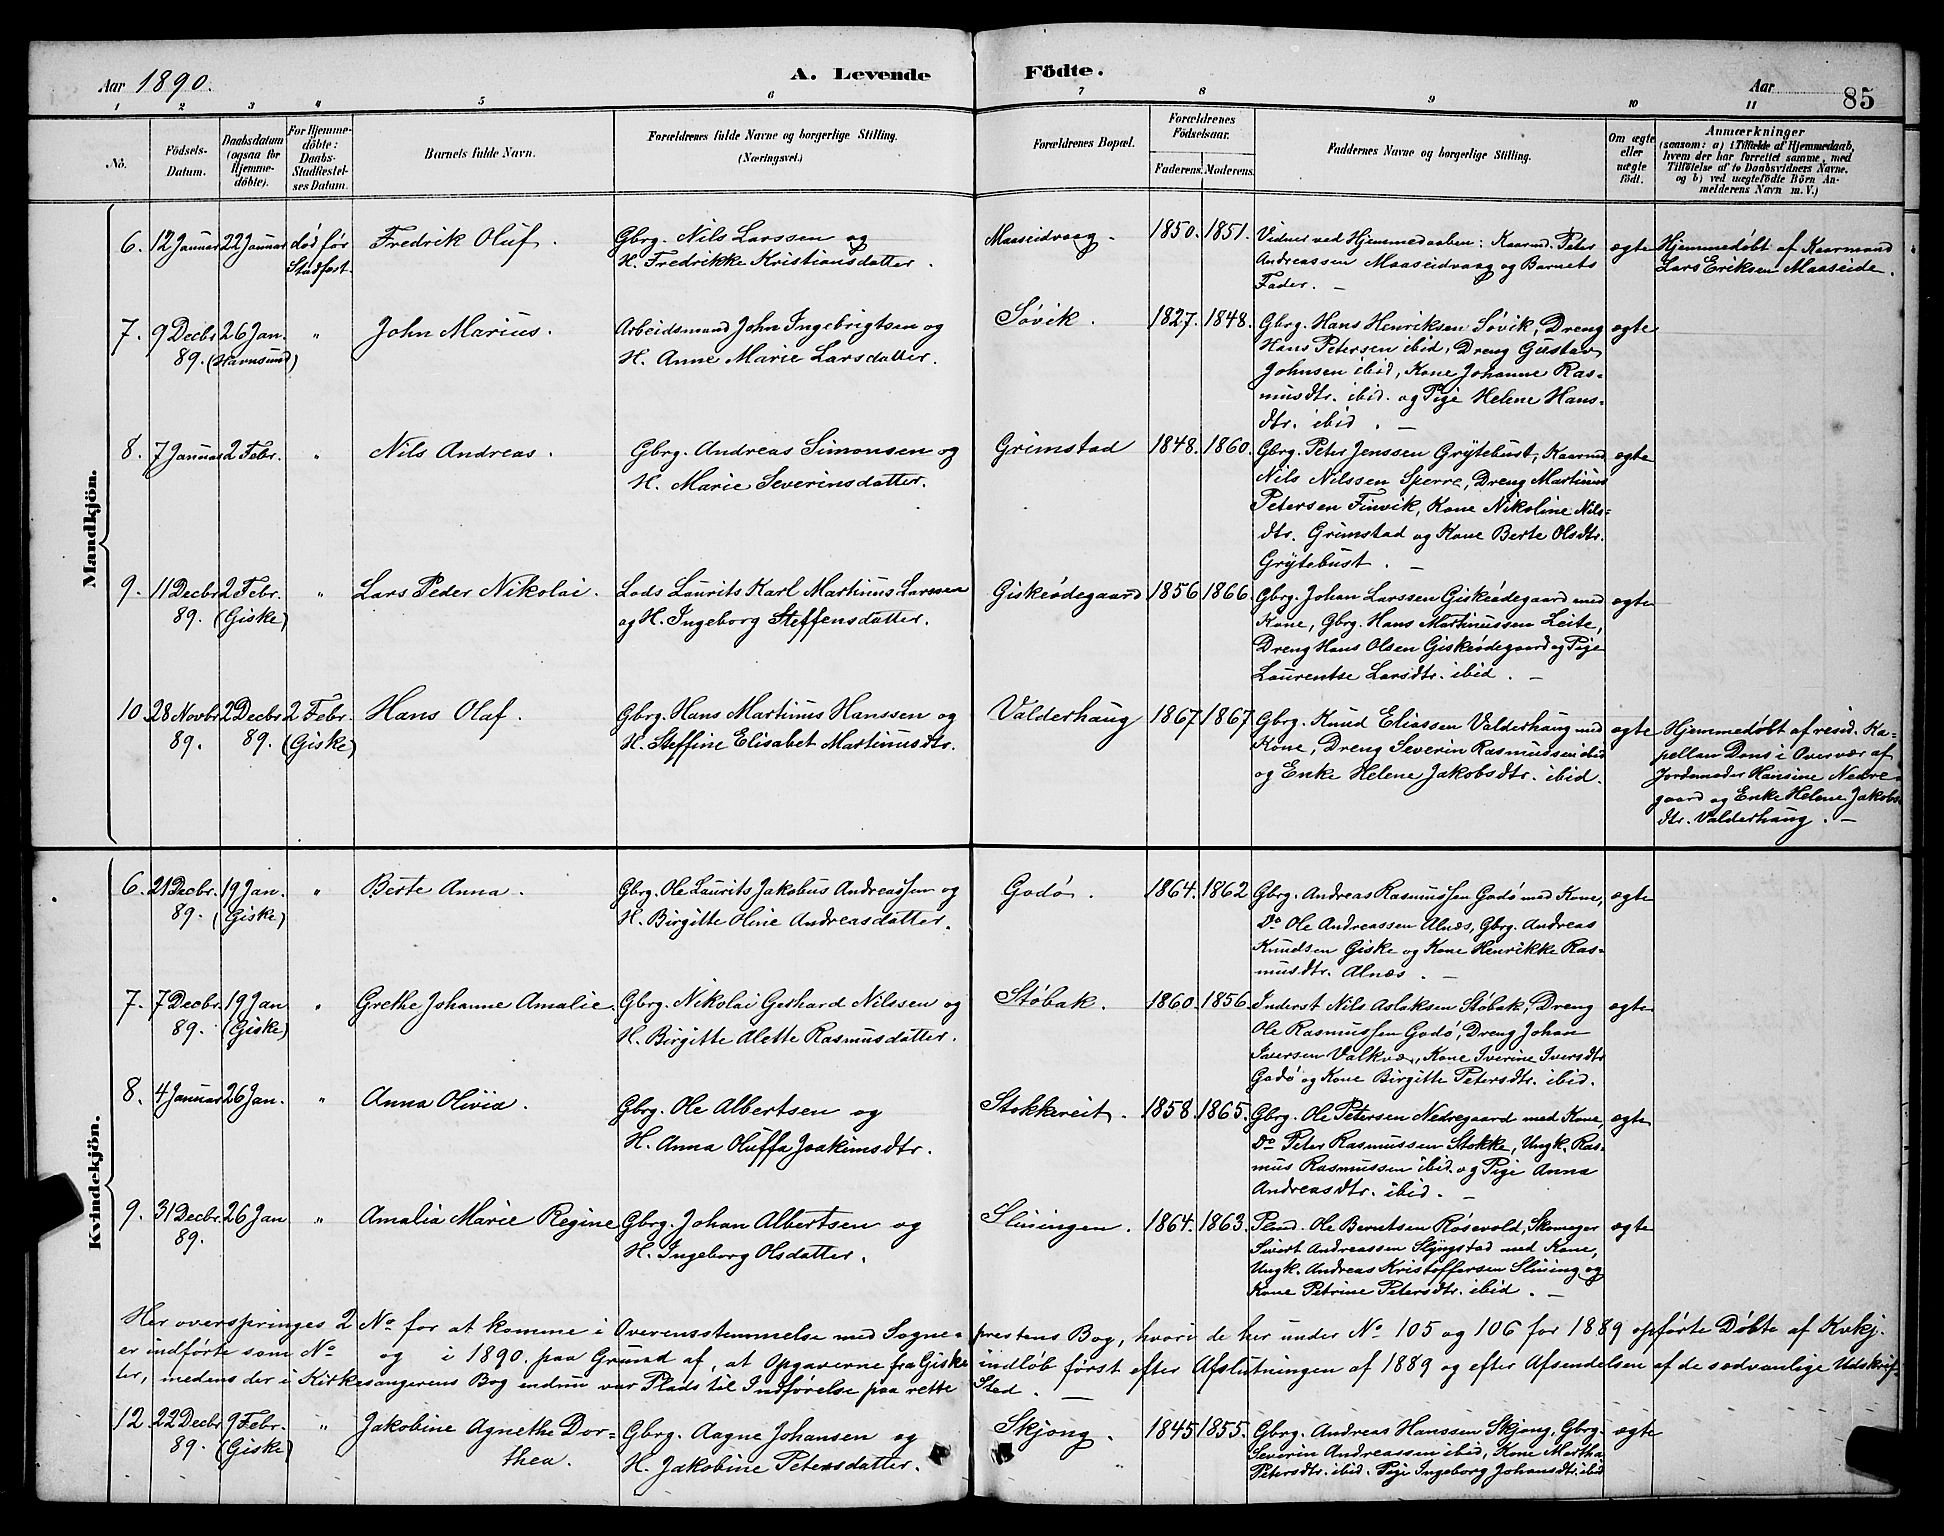 Aar 1890. A. Levende Födte. Aar 85
1 2 3 4 5 6 7 8 9 10 11
No. Födsels-Datum. Daabsdatum (ogsaa for Hjemme-döbte). For Hjemme-döbte: Daabs-Stadfæstel-ses Datum. Barnets fulde Navn. Forældrenes fulde Navne og borgerlige Stilling. (Næringsvei.) Forældrenes Bopæl. Forældrenes Födselsaar. Faderens. Moderens. Faddernes Navne og borgerlige Stilling. Om ægte eller uægte födt. Anmærkninger (saasom: a) i Tilfælde af Hjemmedaab, hvem der har forrettet samme, med Tilföielse af to Daabsvidners Navne, og b) ved uægtefödte Börn An-melderens Navn m. V.)
Mandkjön.
6. 12 Januar 22 Januar død før Fredrik Oluf. Gbrg. Nils Larssen og Maaseidvaag. 1850. 1851. Vidner ved Hjemmedaaben: Kaarmd. Peter ægte Hjemmedøbt af Kaarmand
Stadfæst. H. Fredrikke Kristiansdatter. Andreassen Maaseidvaag og Barnets Lars Eriksen Maaseide.
Fader. —
7. 9 Decbr. 26 Jan. " John Marius. Arbeidsmand John Ingebrigtsen og Søvik. 1827. 1848. Gbrg. Hans Henriksen Søvik, Dreng ægte
89. (Havnsund) H. Anne Marie Larsdatter. Hans Petersen ibid, Dreng Gustav
Johnsen ibid, Kone Johanne Ras-
musdtr. ibid. og Pige Helene Hans-
dtr. ibid. —
8. 7 Januar 2 Febr. " Nils Andreas. Gbrg. Andreas Simonsen og Grimstad 1848. 1860. Gbrg. Peter Jenssen Grytebust, Kaarmd. ægte
H. Marie Severinsdatter. Nils Nilssen Sperre, Dreng Martinus
Petersen Finvik, Kone Nikoline Nils-
dtr. Grimstad og Kone Berte Olsdtr.
Grytebust. —
9. 11 Decbr. 2 Febr. " Lars Peder Nikolai. Lods Laurits Karl Martinus Larssen Giskeødegaard 1856 1866. Gbrg. Johan Larssen Giskeødegaard med ægte
89. (Giske) og H. Ingeborg Steffensdatter. Kone, Gbrg. Hans Martinussen Leite,
Dreng Hans Olsen Giskeødegaard og Pige
Laurentse Larsdtr. ibid. —
10. 28 Novbr. 2 Decbr. 2 Febr. Hans Olaf. Gbrg. Hans Martinus Hanssen og Valderhaug 1867. 1867. Gbrg. Knud Eliassen Valderhaug med ægte Hjemmedøbt af resid. Ka-
89. 89. (Giske) H. Steffine Elisabet Martinusdtr. Kone, Dreng Severin Rasmussen ibid pellan Dons i Overvær af
og Enke Helene Jakobsdtr. ibid. Jordemoder Hansine Nedre-
gaard og Enke Helene Jakobs-
dtr. Valderhaug. —
Kvindekjön.
6. 21 Decbr. 19 Jan. " Berte Anna. Gbrg. Ole Laurits Jakobus Andreassen og Godø. 1864. 1862 Gbrg. Andreas Rasmussen Godø med Kone, ægte
89. (Giske) H. Birgitte Oline Andreasdatter. Do Ole Andreassen Alnæs, Gbrg. Andreas
Knudsen Giske og Kone Henrikke Ras-
musdtr. Alnæs. —
7. 7 Decbr. 19 Jan " Grethe Johanne Amalie. Gbrg. Nikolai Gerhard Nilssen og Støbak. 1860. 1856. Inderst Nils Aslaksen Støbak, Dreng ægte
89. (Giske) H. Birgitte Alette Rasmusdatter. Ole Rasmussen Godø, Dreng Johan
Iversen Valkvæ, Kone Iverine Iversdtr.
Godø og Kone Birgitte Petersdtr. ibid.
8. 4 Januar 26 Jan. " Anna Olivia. Gbrg. Ole Albertsen og Stokkereit. 1858. 1865. Gbrg. Ole Petersen Nedregaard med Kone, ægte
H. Anna Oluffa Joakimsdtr. Do Peter Rasmussen Stokke, Ungk. Ras-
mus Rasmussen ibid. og Pige Anna
Andreasdtr. ibid. —
9. 31 Decbr. 26 Jan " Amalia Marie Regine Gbrg. Johan Albertsen og Slinningen. 1864. 1863. Plmd. Ole Berntsen Røsevold, Skomager ægte
89. H. Ingeborg Olsdatter. Sivert Andreassen Slyngstad med Kone,
Ungk. Andreas Kristoffersen Slining og
Kone Petrine Petersdtr. ibid. —
Her overspringes 2 No for at komme i Overensstemmelse med Sogne-prestens Bog, hvori de her under No 105 og 106 for 1889 opførte Døbte af Kvkj.
er indførte som No og i 1890. paa Grund af, at Opgaverne fra Giske indløb først efter Afslutningen af 1889 og efter Afsendelsen af de sedvanlige Udskrif-
ter, medens der i Kirkesangerens Bog endnu var Plads til Indførelse paa rette Sted. —
12. 22 Decbr. 9 Febr. " Jakobine Agnethe Dor- Gbrg. Aagne Johansen og Skjong. 1845 1855. Gbrg. Andreas Hanssen Skjong, Gbrg. ægte
89. (Giske) thea. H. Jakobine Petersdatter. Severin Andreassen ibid, Kone Martha
Petersdtr. ibid. Pige Ingeborg Johansdtr. ibid